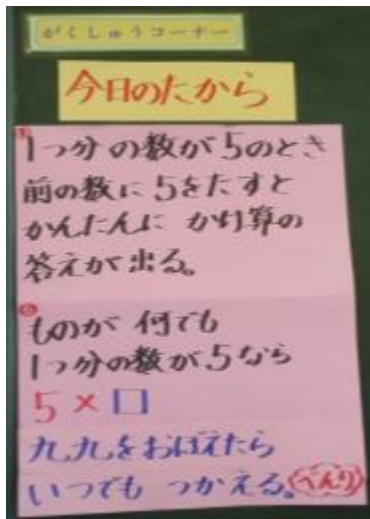 がくしゅうコーナー
今日のたから
①
1つ分の数が5のとき
前の数に5をたすと
かんたんに かけ算の
答えが出る。
②
ものが 何でも
1つ分の数が5なら
5×□
九九をおぼえたら
いつでも つかえる。べんり